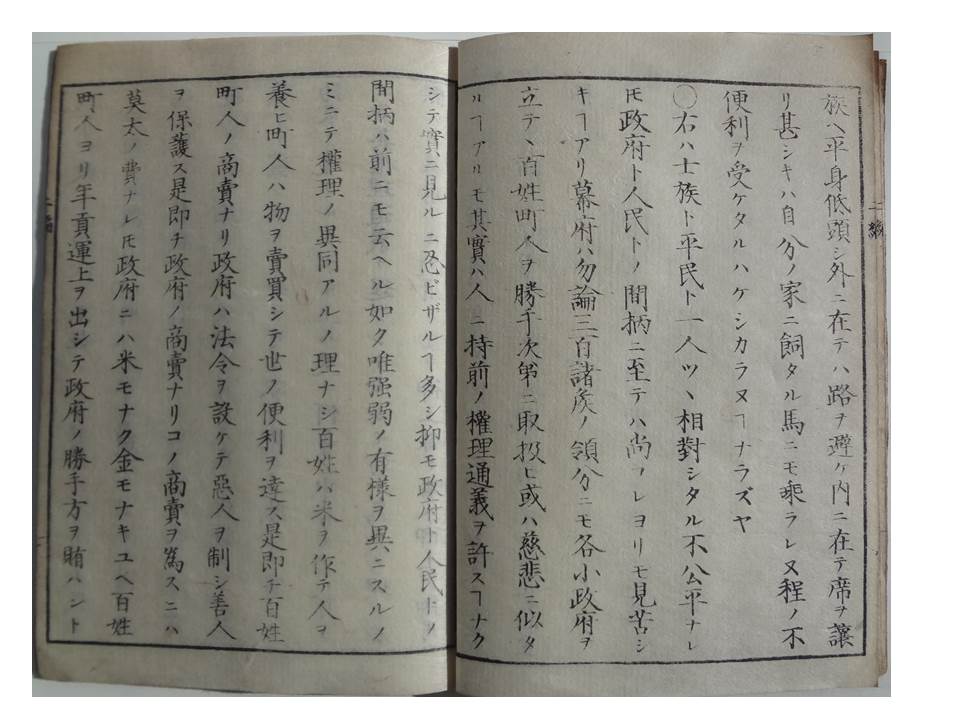 族ヘ平身低頭シ外ニ在テハ路ヲ避ケ内ニ在テ席ヲ讓
リ甚シキハ自分ノ家ニ飼タル馬ニモ乘ラレヌ程ノ不
便利ヲ受ケタルハケシカラヌヿナラズヤ
〇右ハ士族ト平民ト一人ツヽ相對シタル不公平ナレ
𪜈政府ト人民トノ間柄ニ至テハ尚コレヨリモ見苦シ
キヿアリ幕府ハ勿論三百諸矦ノ領分ニモ各小政府ヲ
立テヽ百姓町人ヲ勝手次第ニ取扱ヒ或ハ慈悲ニ似タ
ルヿアルモ其實ハ人ニ持前ノ權理通義ヲ許スヿナク
シテ實ニ見ルニ忍ビザルヿ多シ抑モ政府ト人民トノ
間柄ハ前ニモ云ヘル如ク唯强弱ノ有樣ヲ異ニスルノ
ミニテ權理ノ異同アルノ理ナシ百姓ハ米ヲ作テ人ヲ
養ヒ町人ハ物ヲ賣買シテ世ノ便利ヲ達ス是即チ百姓
町人ノ商賣ナリ政府ハ法令ヲ設ケテ惡人ヲ制シ善人
ヲ保護ス是即チ政府ノ商賣ナリコノ商賣ヲ爲スニハ
莫太ノ費ナレ𪜈政府ニハ米モナク金モナキユヘ百姓
町人ヨリ年貢運上ヲ出シテ政府ノ勝手方ヲ賄ハント